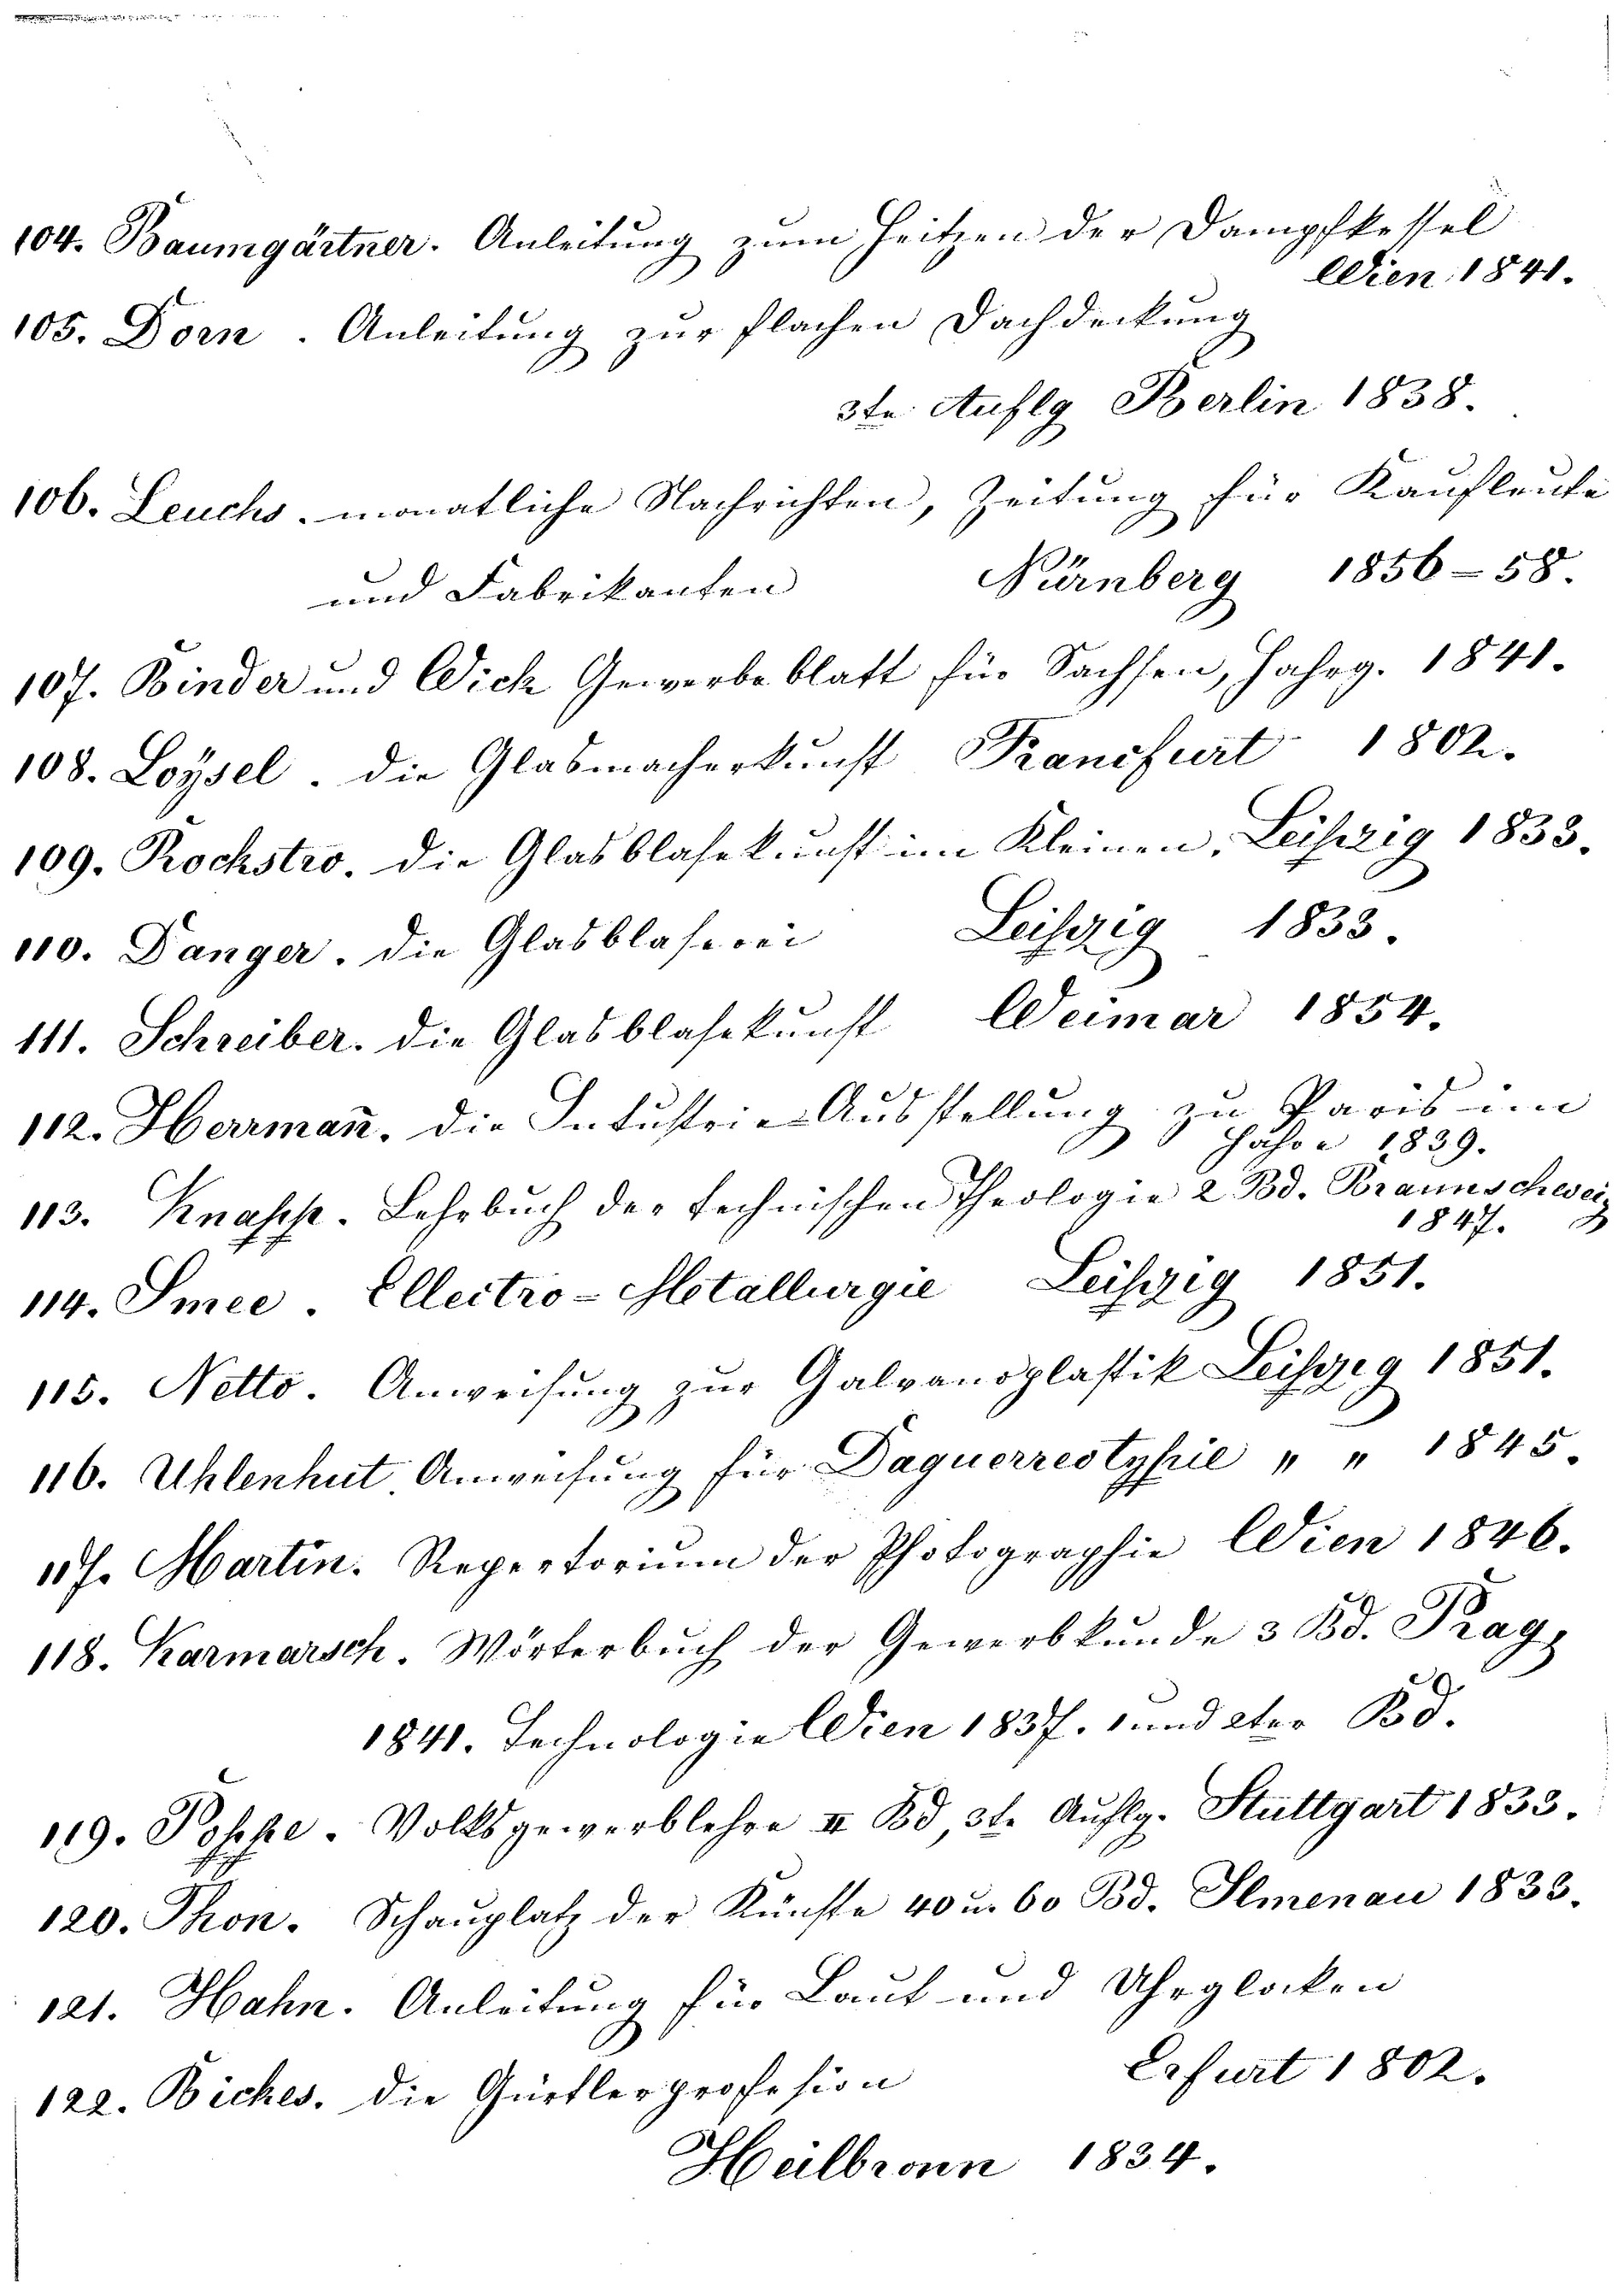 104. Baumgärtner. Anleitung zum Heitzen der Dampfkessel
Wien 1841.
105. Dorn. Anleitung zur flachen Dachdeckung
3te Auflg Berlin 1838.
106. Leuchs. monatliche Nachrichten, Zeitung für Kaufleute
und Fabrikanten Nürnberg 1856-58.
107. Binder und Wick Gewerbeblatt für Sachsen, Jahrg. 1841.
108. Loÿsel. die Glasmacherkunst Francfurt 1802.
109. Rockstro. die Glasblasekunst im Kleinen. Leipzig 1833.
110. Danger. die Glasblaserei Leipzig 1833.
111. Schreiber. die Glasblasekunst Weimar 1854.
112. Herrman̄. die Industrie-Ausstellung zu Paris im
Jahre 1839.
113. Knapp. Lehrbuch der technischen Theologie 2 Bd. Braunschweig
1847.
114. Smee. Ellectro-Metallurgie Leipzig 1851.
115. Netto. Anweisung zur Galvanoplastik Leipzig 1851.
116. Uhlenhut Anweisung für Daguerreotypie " " 1845.
117. Martin. Repertorium der Photographie Wien 1846.
118. Karmarsch. Wörterbuch der Gewerbkunde 3 Bd. Prag,
1841. Technologie Wien 1837. 1 und 2ter Bd.
119. Poppe. Volksgewerblehre II Bd, 3te Auflg. Stuttgart 1833.
120. Thon. Schauplatz der Künste 40 u. 60 Bd. Ilmenau 1833.
121. Hahn. Anleitung für Laut und Uhrglocken
Erfurt 1802.
122. Biches. die Gürtlerprofesion
Heilbronn 1834.